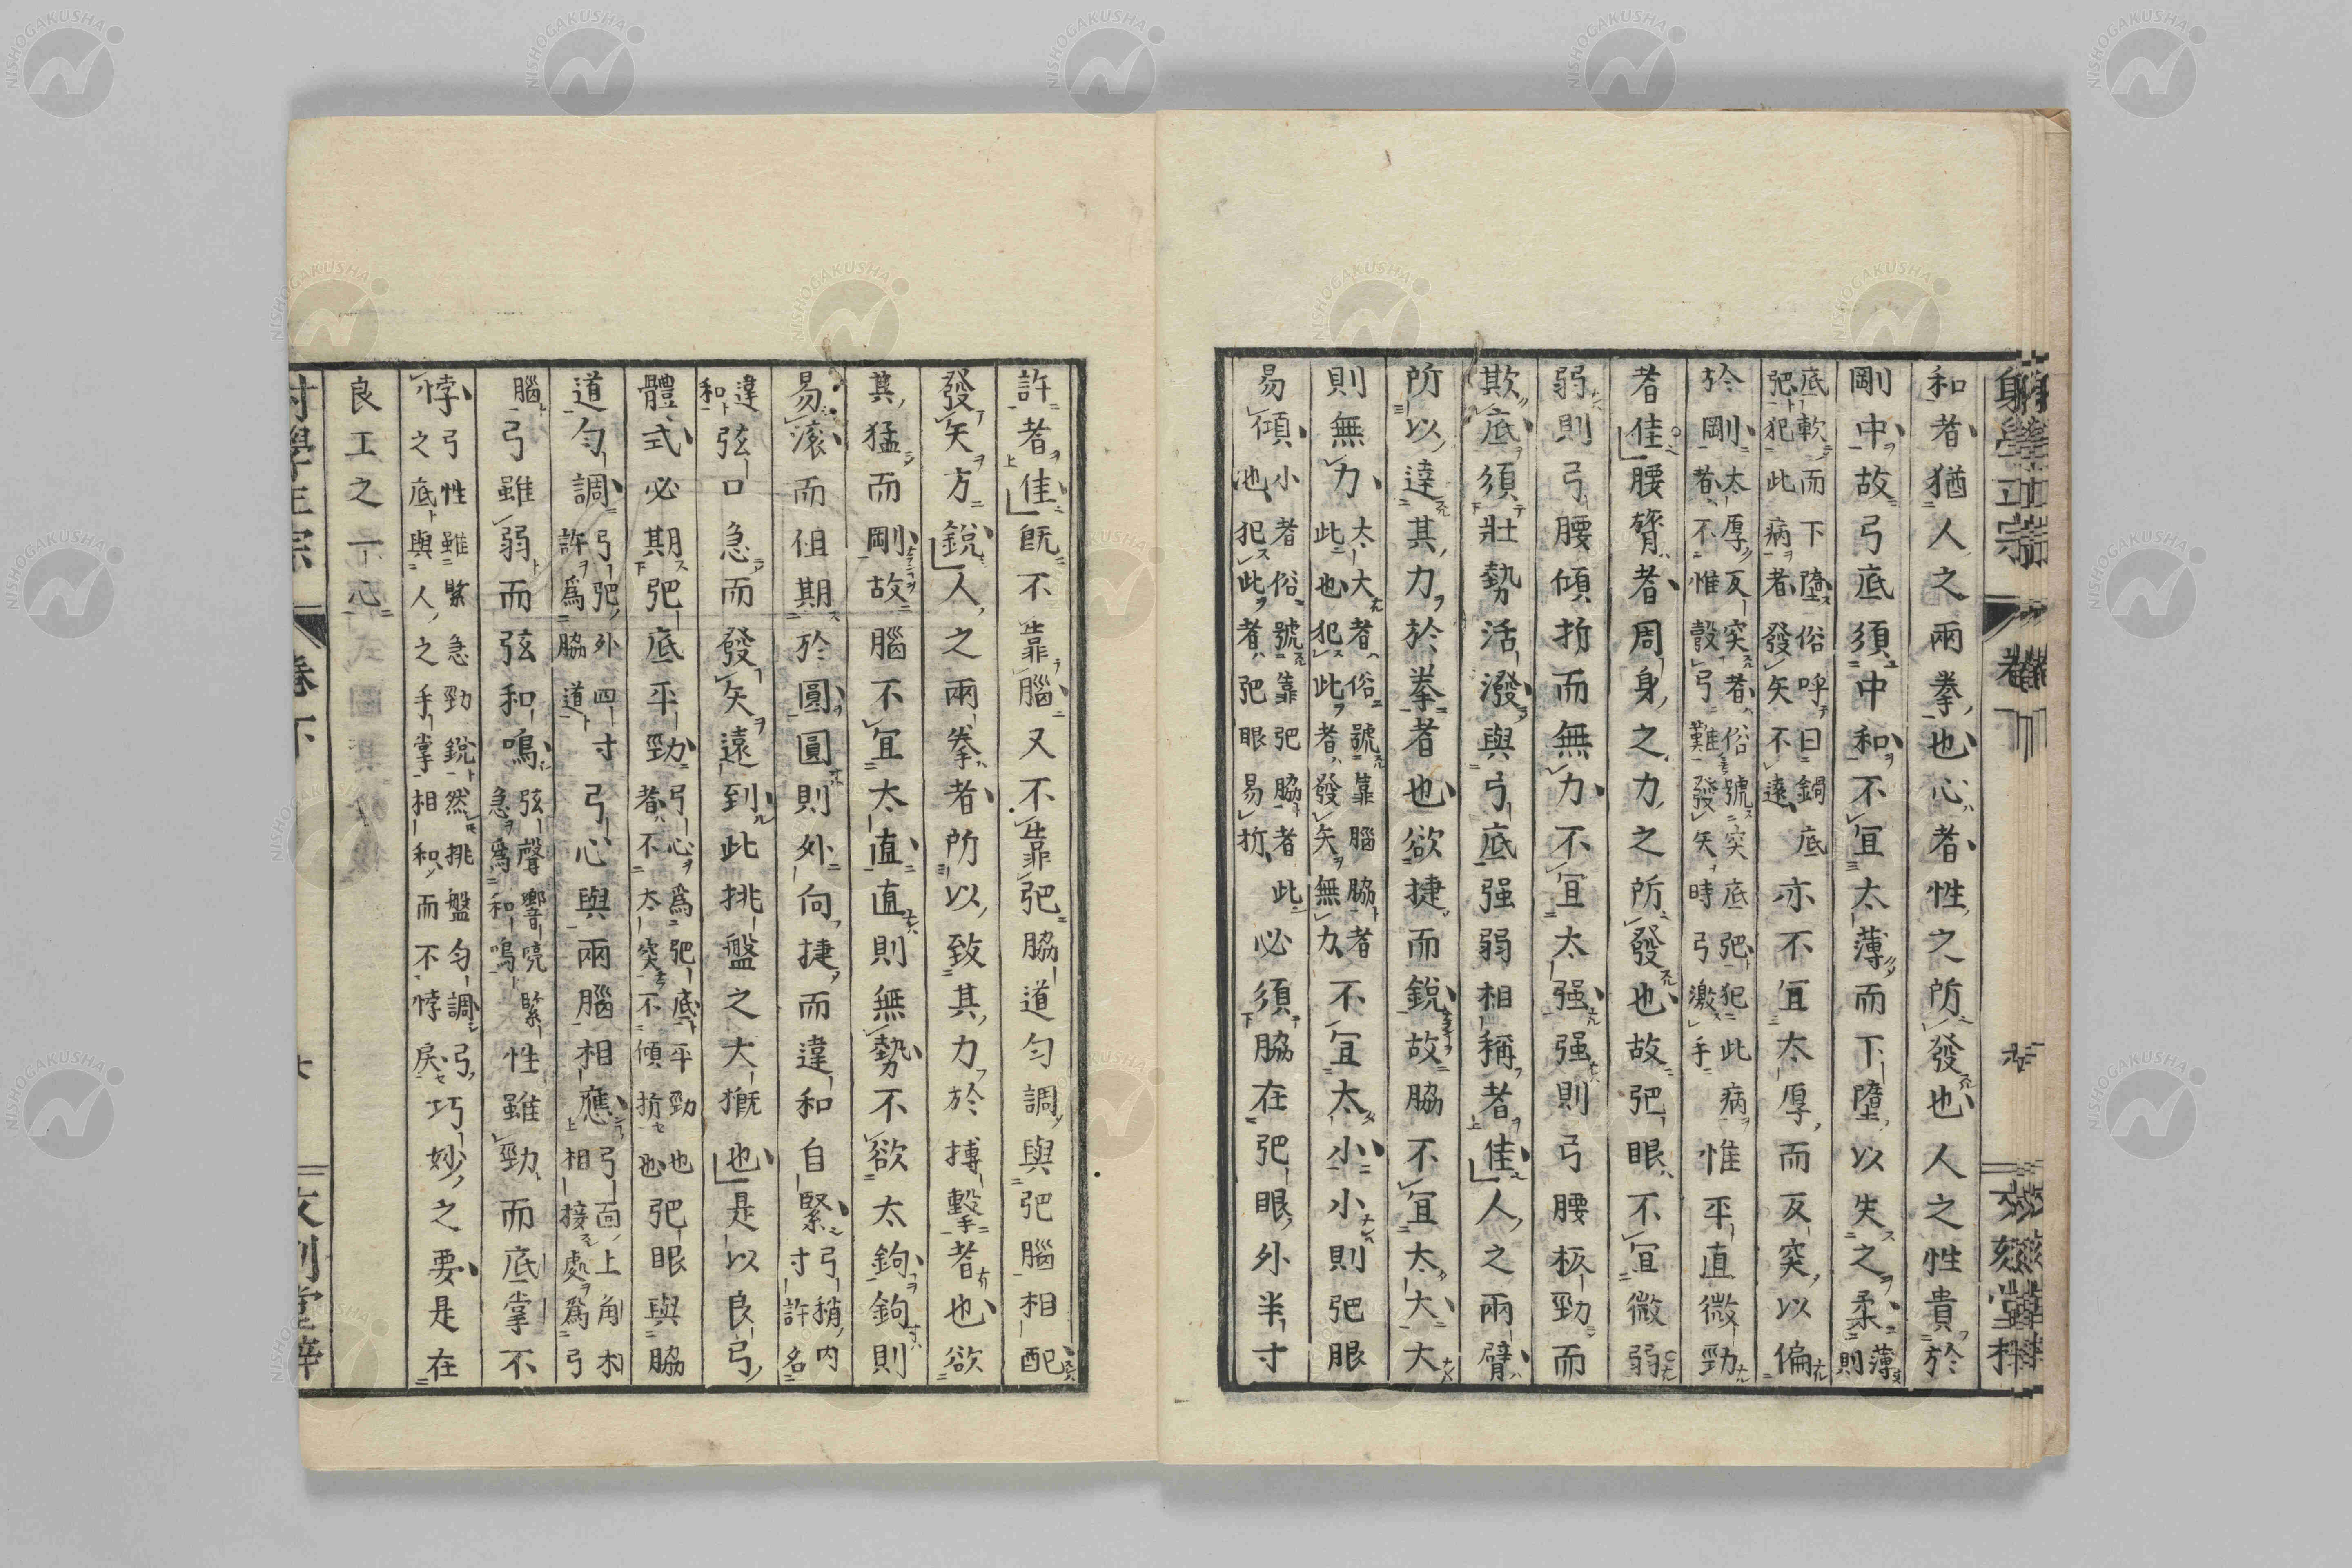 和者猶人之兩拳也心者性之所發也人之性貴於
剛中故弓底須中和不宜太薄而下墮以失之柔薄則
底軟而下墮俗呼曰鍋底
弝犯此病者發矢不遠
亦不宜太厚而反突以偏
於剛太厚反突者俗號突底弝犯此病
者不惟彀弓難發矢時弓激手
惟平直微勁
者佳腰膂者周身之力之所發也故弝眼不宜微弱
弱則弓腰傾折而無力不宜太强强則弓腰板勁而
欺底須壯勢活潑與弓底强弱相稱者佳人之兩臂
所以達其力於拳者也欲捷而銳故腦不宜太大大
則無力太大者俗號靠腦脇者
此也犯此者發矢無力
不宜太小小則弝眼
易傾小者俗號靠弝脇者此
也犯此者弝眼易折
必須脇在弝眼外半寸
許者佳既不靠腦又不靠弝脇道勻調與弝腦相配
發矢方銳人之兩拳者所以致其力於搏擊者也欲
其猛而剛故腦不宜太直直則無勢不欲太鉤鉤則
易滾而但期於圓圓則外向捷而違和自緊弓稍內
寸許名
違
和
弦口急而發矢遠到此挑盤之大概也是以良弓
體式必期弝底平勁弓心爲弝底平勁也
者不太突不傾折也
弝眼與脇
道勻調弓弝外四寸
許爲脇道
弓心與兩腦相應弓面上角木
相接處爲弓
腦
弓雖弱而弦和鳴弦聲響喨緊
急爲和鳴
性雖勁而底掌不
悖弓性雖緊急勁銳然挑盤勻調弓
之底與人之手掌相和而不悖戾
巧妙之要是在
良工之一心
射學正宗
卷下
九
文刻堂梓